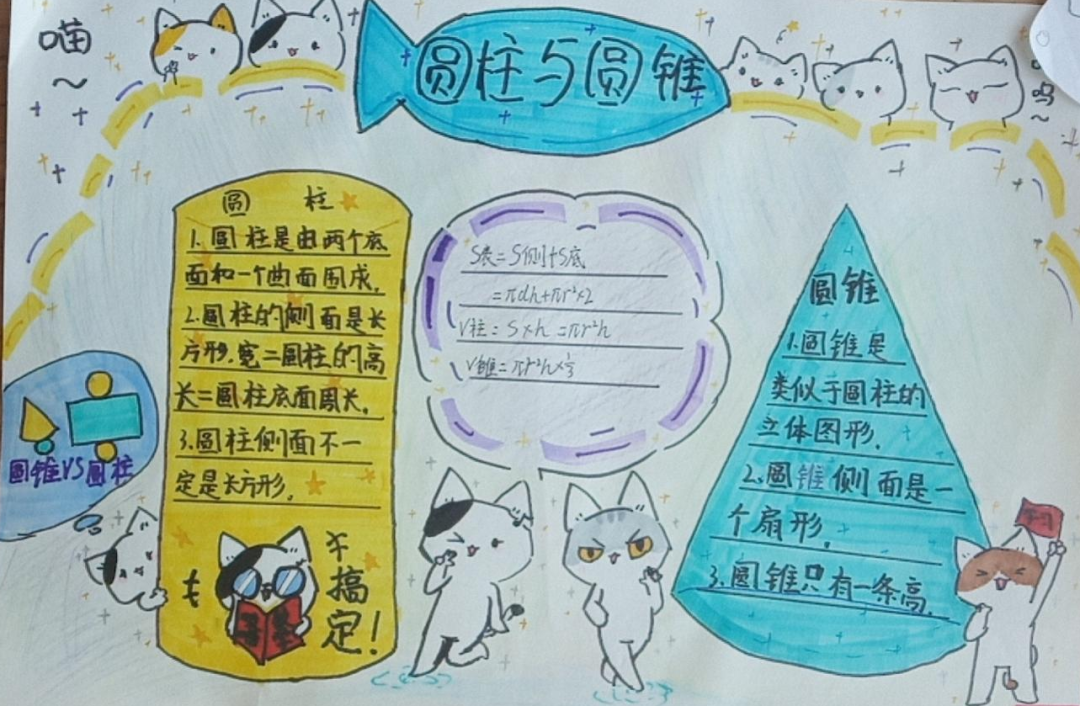 喵
~
圆柱与圆锥
呜
~
圆 柱
1. 圆柱是由两个底
面和一个曲面围成.
2.圆柱的侧面是长
方形.宽=圆柱的高
长=圆柱底面周长.
3.圆柱侧面不一
定是长方形.
搞
定!
S表=S侧+S底
=πdh+πr²×2
V柱=S×h=πr²h
V锥=πr²h×⅓
圆锥
1.圆锥是
类似于圆柱的
立体图形.
2.圆锥侧面是一
个扇形.
3.圆锥只有一条高.
圆锥VS圆柱
学习